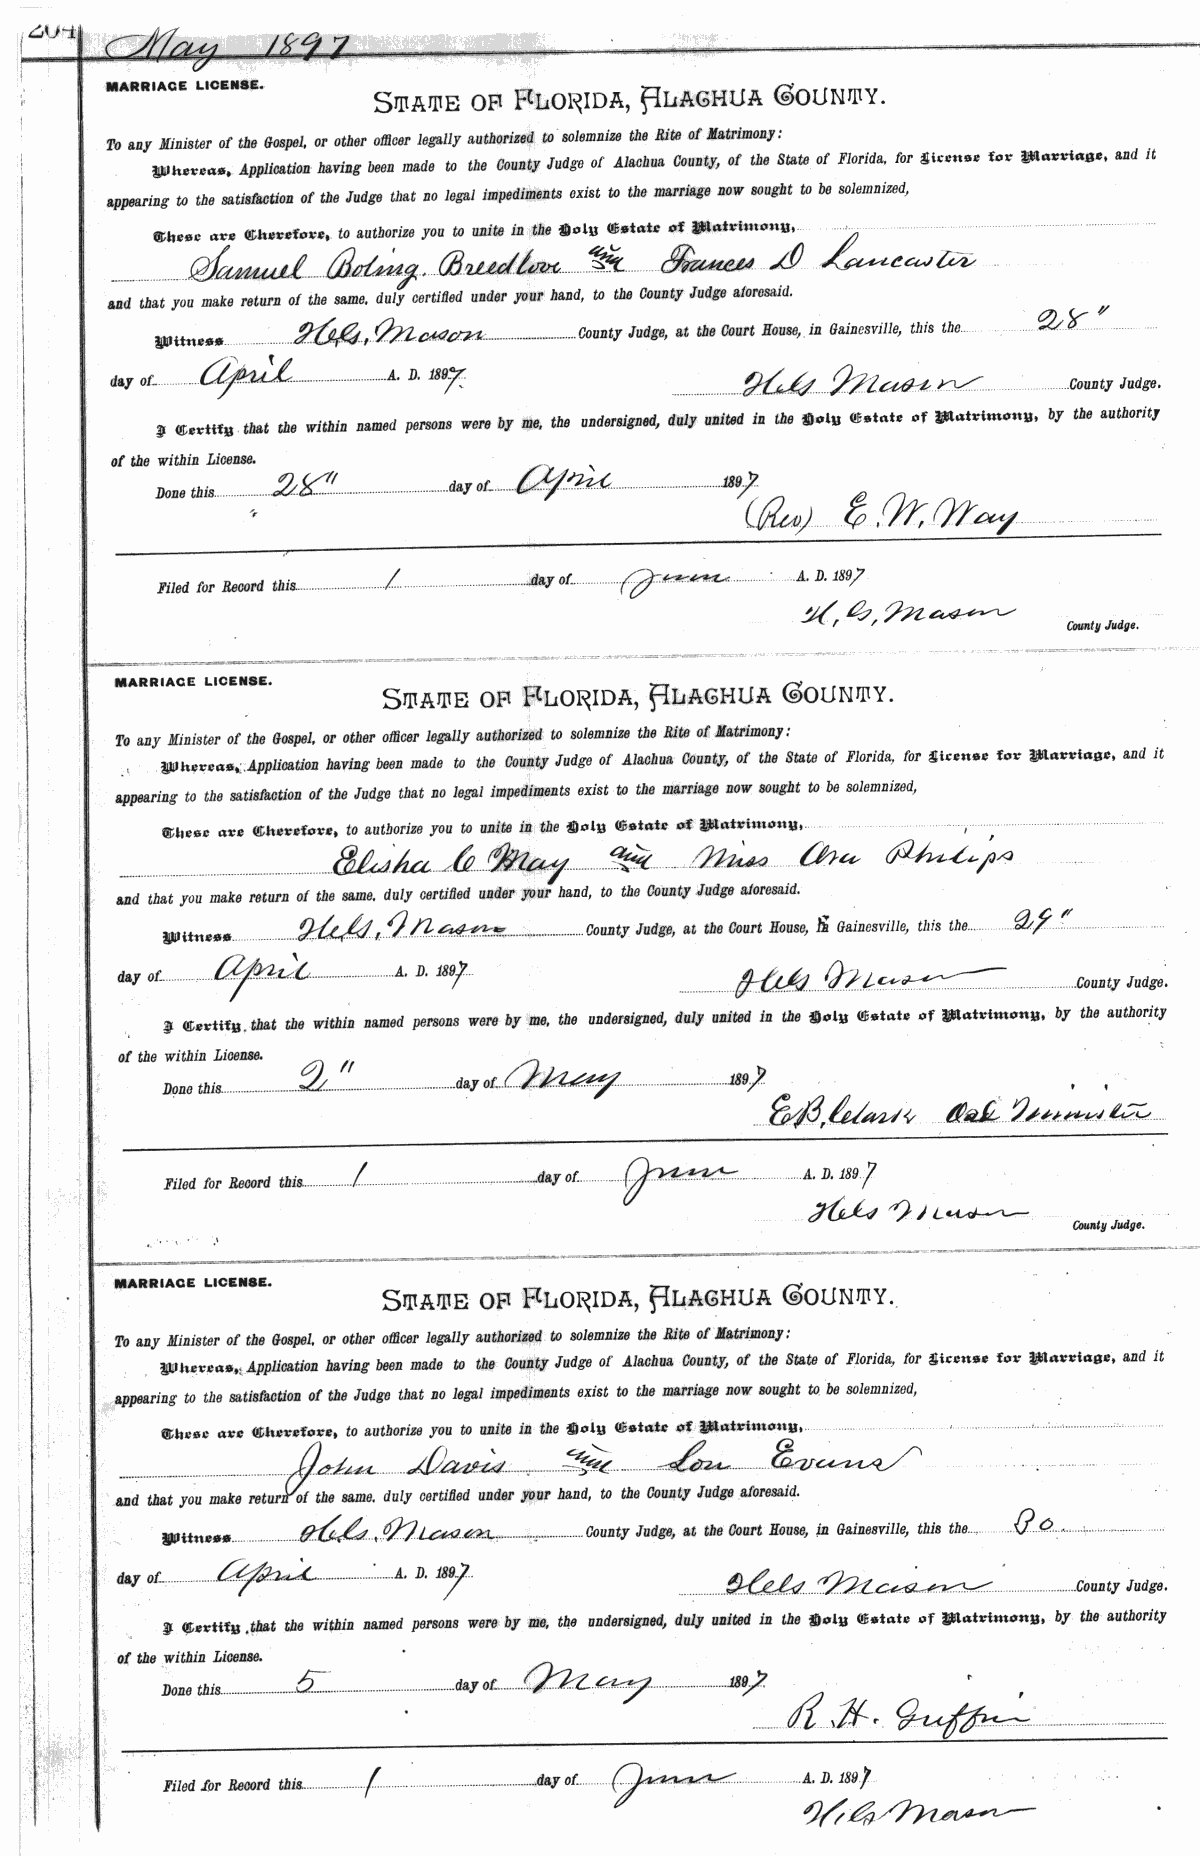 204
May 1897
MARRIAGE LICENSE.
STATE OF FLORIDA, ALACHUA COUNTY.
To any Minister of the Gospel, or other officer legally authorized to solemnize the Rite of Matrimony:
Whereas, Application having been made to the County Judge of Alachua County, of the State of Florida, for License for Marriage, and it
appearing to the satisfaction of the Judge that no legal impediments exist to the marriage now sought to be solemnized,
These are Therefore, to authorize you to unite in the Holy Estate of Matrimony,
Samuel Boling Breedlove and Frances D Lancaster
and that you make return of the same, duly certified under your hand, to the County Judge aforesaid.
Witness Mason County Judge, at the Court House, in Gainesville, this the 28"
day of April A. D. 1897.
Mason County Judge.
I Certify that the within named persons were by me, the undersigned, duly united in the Holy Estate of Matrimony, by the authority
of the within License.
Done this 28" day of April 1897
(Rev) E. W. Way
Filed for Record this 1 day of June A. D. 1897
H. G. Mason
County Judge.
MARRIAGE LICENSE.
STATE OF FLORIDA, ALACHUA COUNTY.
To any Minister of the Gospel, or other officer legally authorized to solemnize the Rite of Matrimony:
Whereas, Application having been made to the County Judge of Alachua County, of the State of Florida, for License for Marriage, and it
appearing to the satisfaction of the Judge that no legal impediments exist to the marriage now sought to be solemnized,
These are Therefore, to authorize you to unite in the Holy Estate of Matrimony,
Elisha C May and Miss Ora Philips
and that you make return of the same, duly certified under your hand, to the County Judge aforesaid.
Witness Mason County Judge, at the Court House, in Gainesville, this the 29"
day of April A. D. 1897
Mason County Judge.
I Certify that the within named persons were by me, the undersigned, duly united in the Holy Estate of Matrimony, by the authority
of the within License.
Done this 2" day of May 1897
E B, Clark Minister
Filed for Record this 1 day of June A. D. 1897
Mason
County Judge.
MARRIAGE LICENSE.
STATE OF FLORIDA, ALACHUA COUNTY.
To any Minister of the Gospel, or other officer legally authorized to solemnize the Rite of Matrimony:
Whereas, Application having been made to the County Judge of Alachua County, of the State of Florida, for License for Marriage, and it
appearing to the satisfaction of the Judge that no legal impediments exist to the marriage now sought to be solemnized,
These are Therefore, to authorize you to unite in the Holy Estate of Matrimony,
John Davis and Lou Evans
and that you make return of the same, duly certified under your hand, to the County Judge aforesaid.
Witness Mason County Judge, at the Court House, in Gainesville, this the 30.
day of April A. D. 1897
Mason County Judge.
I Certify that the within named persons were by me, the undersigned, duly united in the Holy Estate of Matrimony, by the authority
of the within License.
Done this 5 day of May 1897
R. H. Griffin
Filed for Record this 1 day of June A. D. 1897
Mason